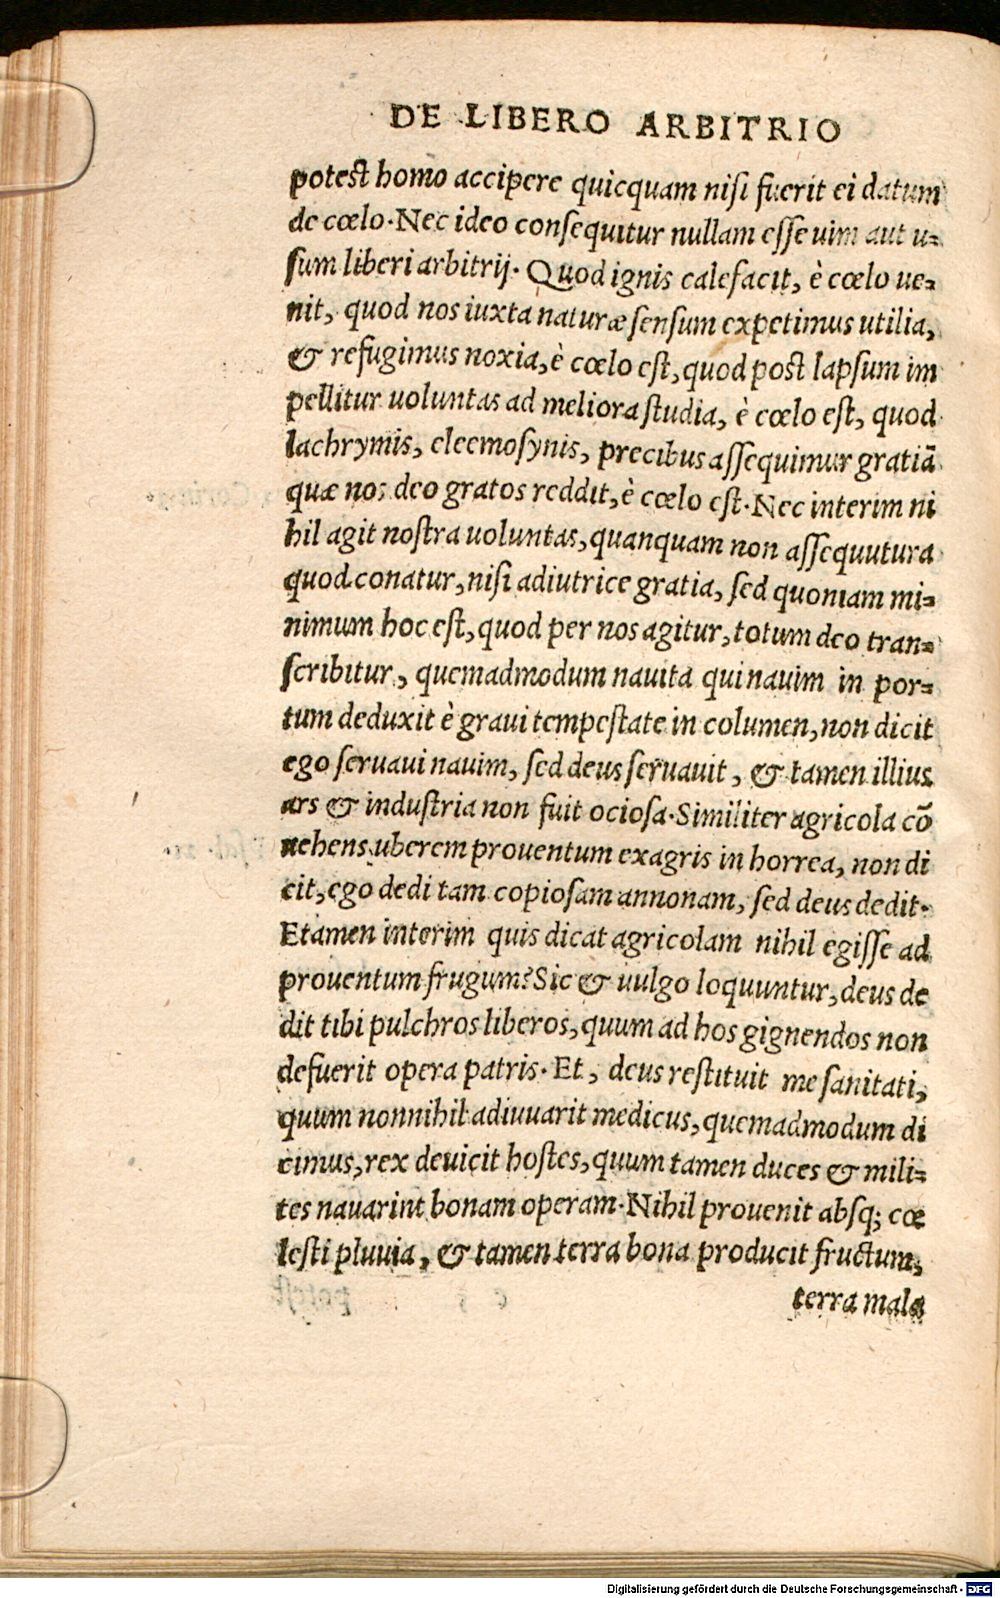 DE LIBERO ARBITRIO
potest homo accipere quicquam nisi fuerit ei datum
de cœlo. Nec ideo consequitur nullam esse uim aut u-
sum liberi arbitrij. Quod ignis calefacit, è cœlo ue-
nit, quod nos iuxta naturæ sensum expetimus utilia,
& refugimus noxia, è cœlo est, quod post lapsum im
pellitur uoluntas ad meliora studia, è cœlo est, quod
lachrymis, eleemosynis, precibus assequimur gratiā
quæ nos deo gratos reddit, è cœlo est. Nec interim ni
hil agit nostra uoluntas, quanquam non assequutura
quod conatur, nisi adiutrice gratia, sed quoniam mi-
nimum hoc est, quod per nos agitur, totum deo tran-
scribitur, quemadmodum nauita qui nauim in por-
tum deduxit è graui tempestate in columen, non dicit
ego seruaui nauim, sed deus seruauit, & tamen illius
ars & industria non fuit ociosa. Similiter agricola cō
uehens uberem prouentum ex agris in horrea, non di
cit, ego dedi tam copiosam annonam, sed deus dedit.
Et amen interim quis dicat agricolam nihil egisse ad
prouentum frugum? Sic & uulgo loquuntur, deus de
dit tibi pulchros liberos, quum ad hos gignendos non
defuerit opera patris. Et, deus restituit me sanitati,
quum nonnihil adiuuarit medicus, quemadmodum di
cimus, rex deuicit hostes, quum tamen duces & mili-
tes nauarint bonam operam. Nihil prouenit absq; cœ
lesti pluuia, & tamen terra bona producit fructum,
terra mala
Digitalisierung gefördert durch die Deutsche Forschungsgemeinschaft - DFG